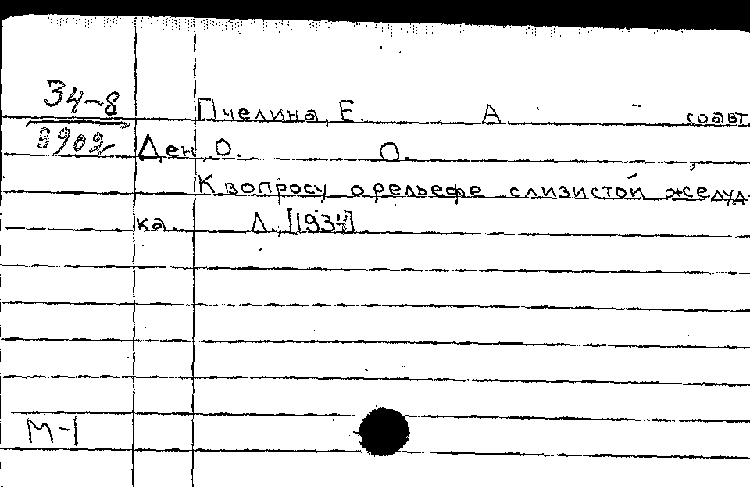 34-8
8902
Пчелина, Е. А. соавт.
Ден, О. О.
К вопросу о рельефе слизистой желуд-
ка. Л., [1934].
М-1